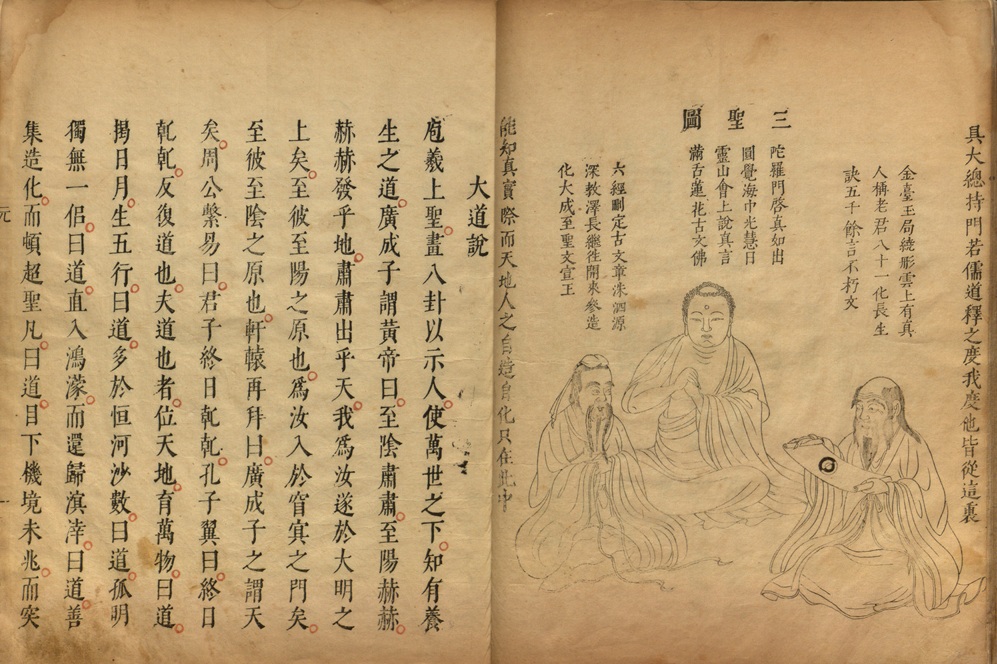 具大總持門若儒道釋之度我度他皆從這裏
金臺玉局繞彤雲上有真
人稱老君八十一化長生
訣五千餘言不朽文
三聖圖
陀羅門啓真如出
圓覺海中光慧日
靈山會上說真言
滿舌蓮花古文佛
六經刪定古文章洙泗源
深教澤長繼往開來參造
化大成至聖文宣王
能知真實際而天地人之自造自化只在此中
大道說
庖羲上聖畫八卦以示人使萬世之下知有養
生之道廣成子謂黃帝曰至陰肅肅至陽赫赫
赫赫發乎地肅肅出乎天我爲汝遂於大明之
上矣至彼至陽之原也爲汝入於窅冥之門矣
至彼至陰之原也軒轅再拜曰廣成子之謂天
矣周公繫易曰君子終日乾乾孔子翼曰終日
乾乾反復道也夫道也者位天地育萬物曰道
揭日月生五行曰道多於恒河沙數曰道孤明
獨無一侶曰道直入鴻濛而還歸溟涬曰道善
集造化而頓超聖凡曰道目下機境未兆而突
元